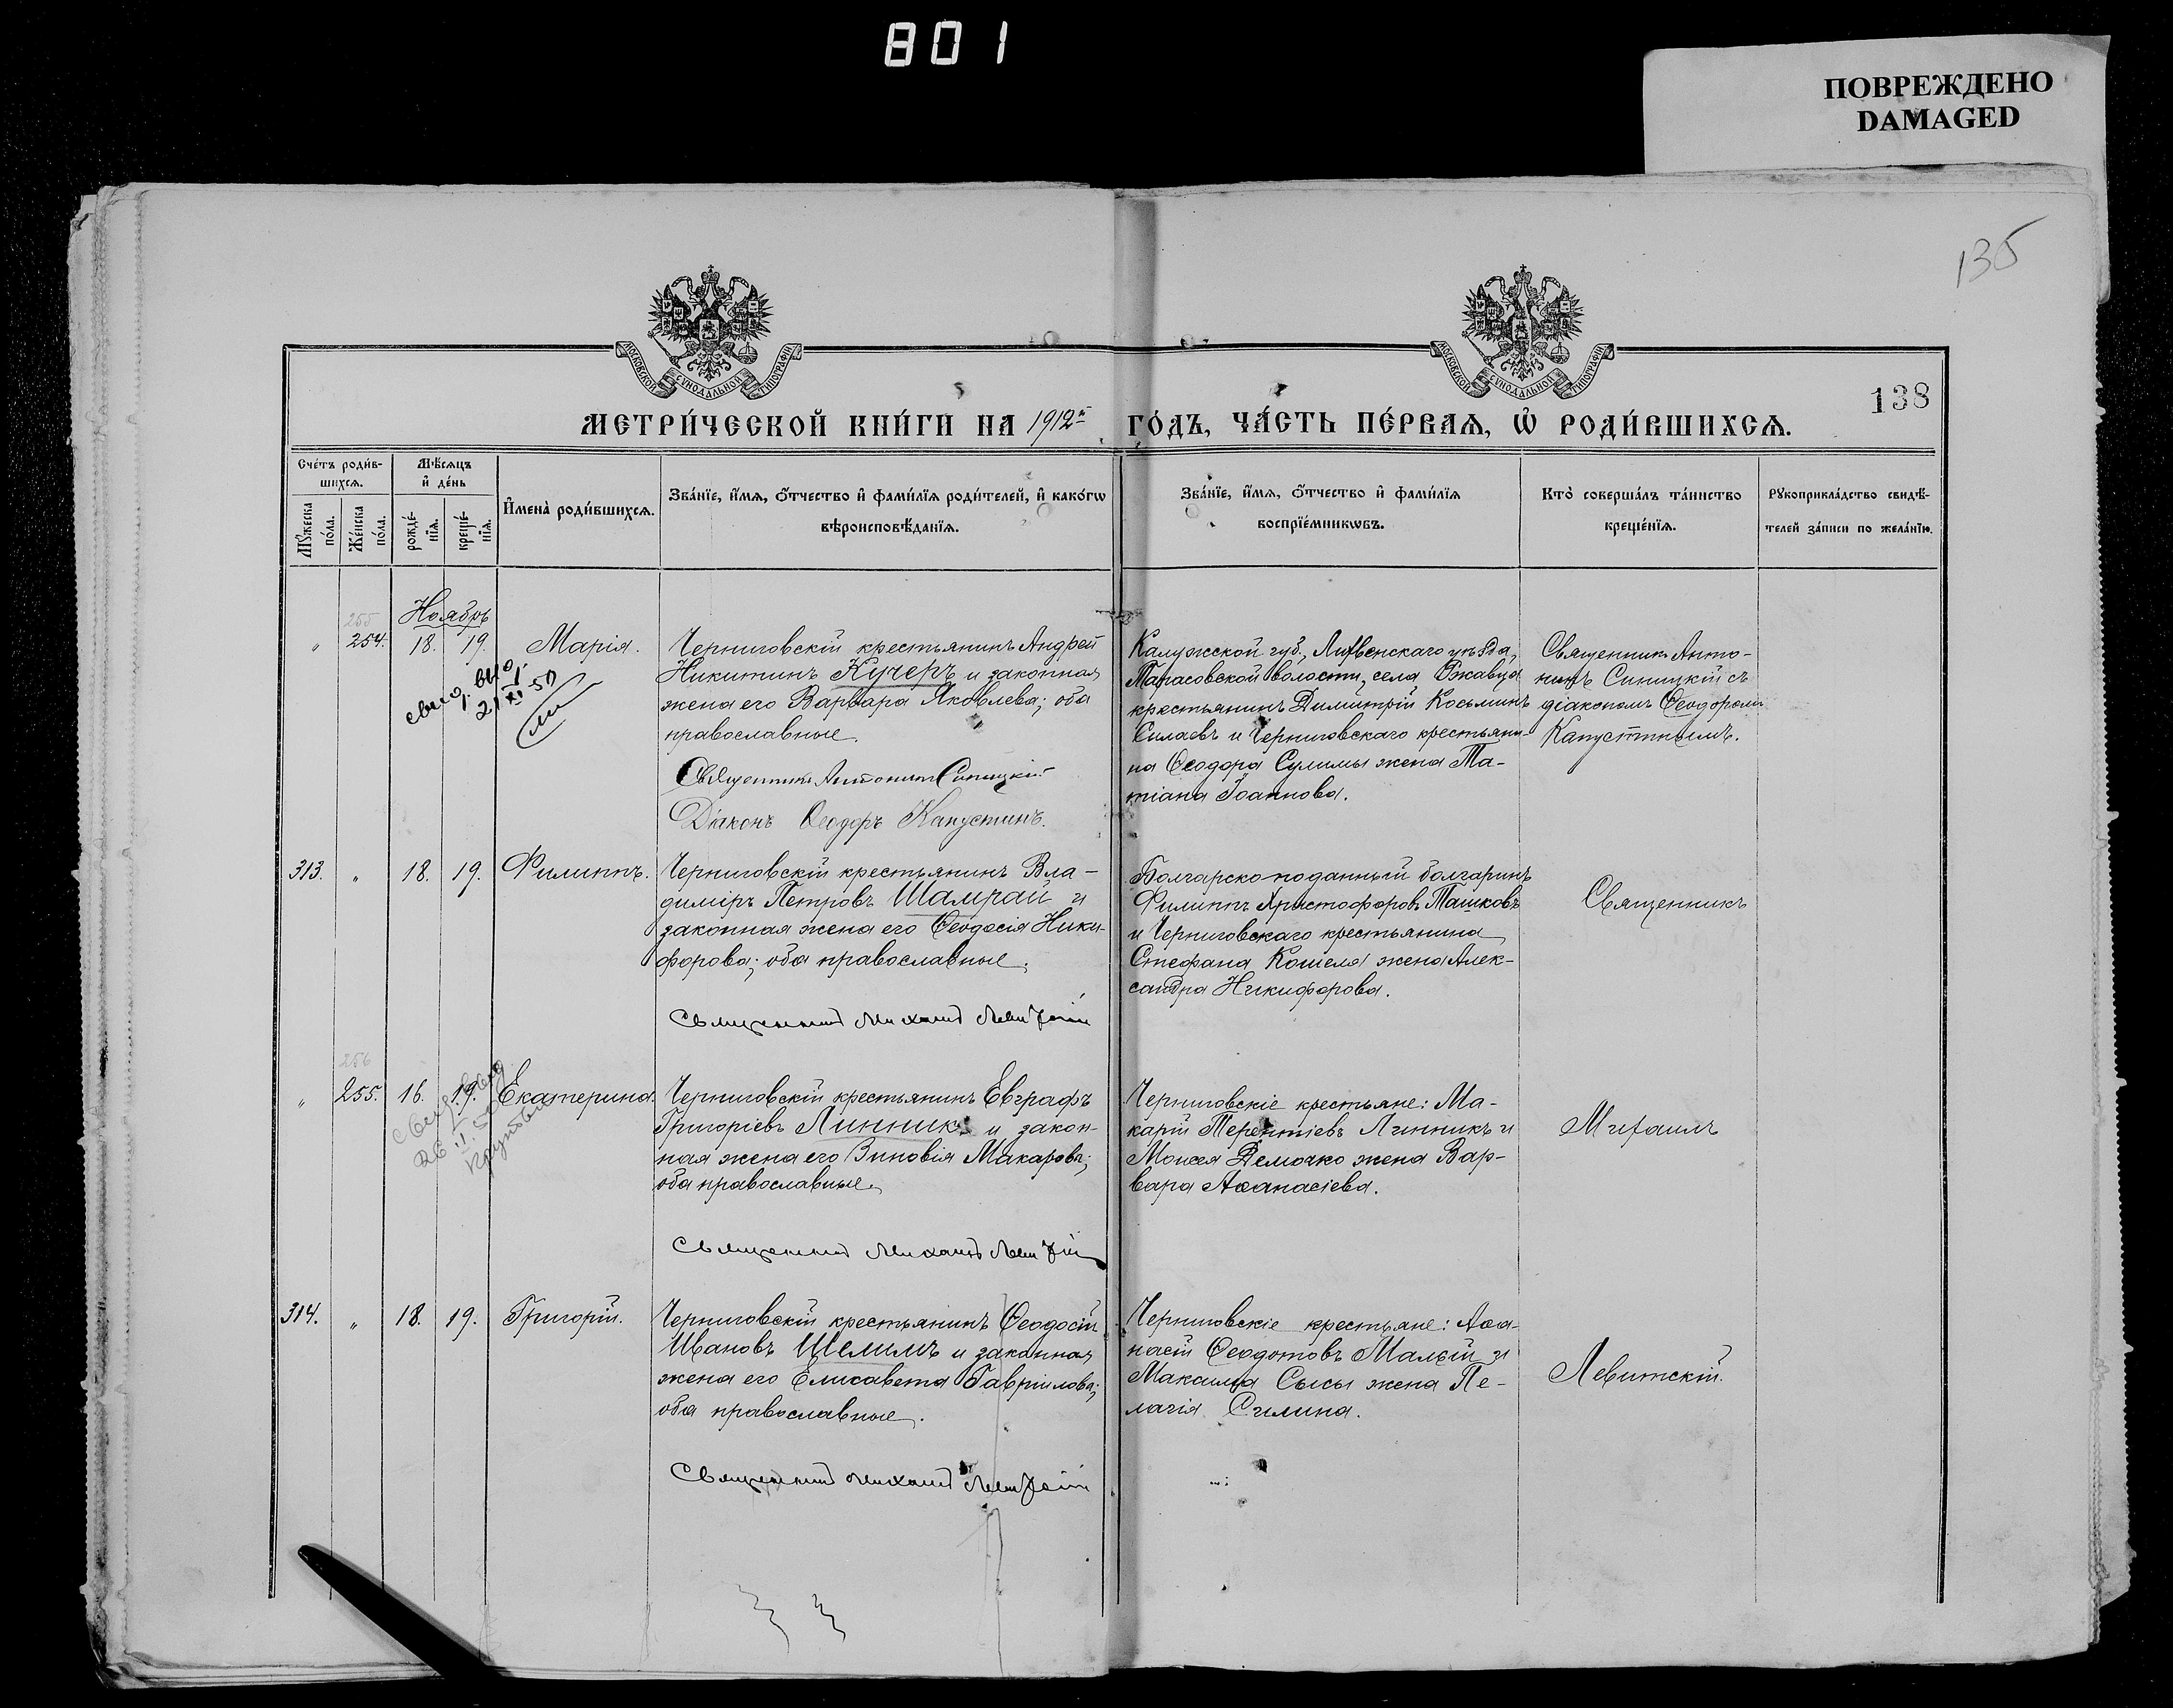 801
ПОВРЕЖДЕНО
DAMAGED
135
МОСКОВСКОЙ СѴНОДАЛЬНОЙ ТИПОГРАФІИ
МОСКОВСКОЙ СѴНОДАЛЬНОЙ ТИПОГРАФІИ
138
МЕТРИ́ЧЕСКОЙ КНИ́ГИ НА 1912й ГО́ДЪ, ЧА́СТЬ ПЕ́РВАѦ, Ѡ҆ РОДИ́ВШИХСѦ.
Сче́тъ роди́в-
шихсѧ.
Мꙋ́жеска
по́ла.
Же́нска
по́ла.
Мѣ́сѧцъ
и҆ де́нь
рожде́-
нїѧ.
креще́-
нїѧ.
И҆мена̀ роди́вшихсѧ.
Зва́нїе, и҆́мѧ, ѻ҆́тчество и҆ фами́лїѧ роди́телей, и҆ како́гѡ
вѣроисповѣ́данїѧ.
Зва́нїе, и҆́мѧ, ѻ҆́тчество и҆ фами́лїѧ
воспрїе́мникѡвъ.
Кто̀ соверша́лъ та́инство
креще́нїѧ.
Рꙋкоприкла́дство свидѣ́-
телей за́писи по жела́нїю.
Ноябрь
255
" 254. 18. 19. Марія.
Черниговскій крестьянинъ Андрей
Никитинъ Кучеръ и законная
жена его Варвара Яковлева; оба
православные.
Священникъ Антонинъ Синицкій
Діаконъ Ѳеодоръ Капустинъ.
Калужской губ., Лихвенскаго уѣзда,
Тарасовской волости, села Ржавца
крестьянинъ Димитрій Косьминъ
Силаевъ и Черниговскаго крестьяни-
на Ѳеодора Сулимы жена Та-
тіана Іоаннова.
Священникъ Анто-
нинъ Синицкій съ
діакономъ Ѳеодоромъ
Капустинымъ.
21 XI 50
313. " 18. 19. Филиппъ.
Черниговскій крестьянинъ Вла-
диміръ Петровъ Шамрай и
законная жена его Ѳеодосія Ники-
форова; оба православные.
Священникъ Михаилъ Левитскій
Болгарско-поданный болгаринъ
Филиппъ Христофоровъ Ташковъ
и Черниговскаго крестьянина
Стефана Кошеля жена Алек-
сандра Никифорова.
Священникъ
256
" 255. 16. 19. Екатерина.
Черниговскій крестьянинъ Евграфъ
Григоріевъ Линникъ и закон-
ная жена его Зиновія Макарова;
оба православные.
Священникъ Михаилъ Левитскій
Черниговскіе крестьяне: Ма-
карій Терентіевъ Линникъ и
Моисея Демочко жена Вар-
вара Аѳанасіева.
Михаилъ
314. " 18. 19. Григорій.
Черниговскій крестьянинъ Ѳеодосій
Ивановъ Шелимъ и законная
жена его Елисавета Гавріилова;
оба православные.
Священникъ Михаилъ Левитскій
Черниговскіе крестьяне: Аѳа-
насій Ѳеодотовъ Малый и
Макаима Сысы жена Пе-
лагія Силина.
Левитскій.